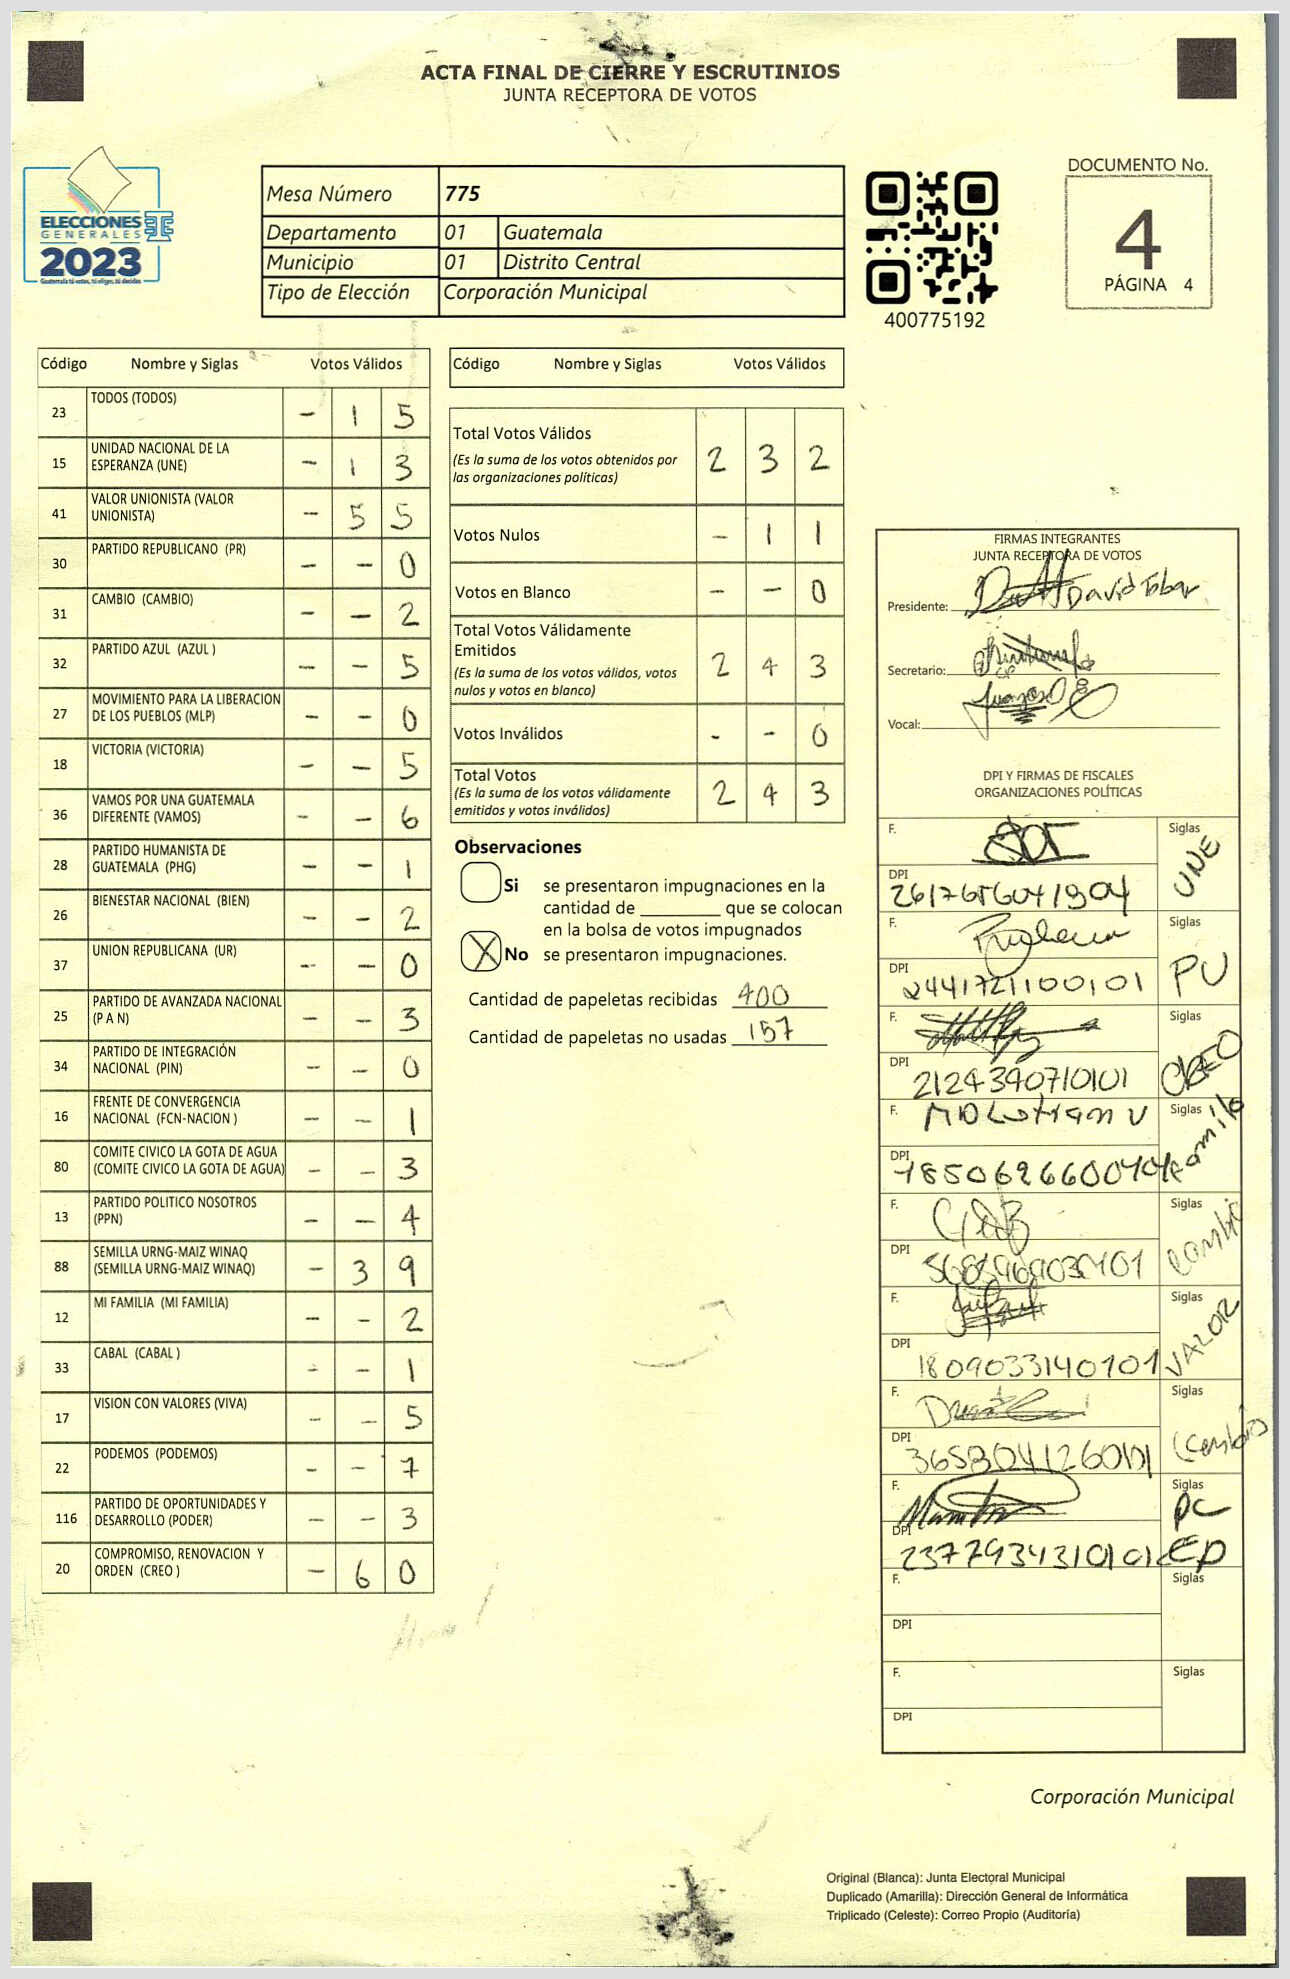 ACTA FINAL DE CIERRE Y ESCRUTINIOS
JUNTA RECEPTORA DE VOTOS
ELECCIONES
GENERALES
2023
Guatemala tú votas, tú eliges, tú decides
Mesa Número 775
Departamento 01 Guatemala
Municipio 01 Distrito Central
Tipo de Elección Corporación Municipal
400775192
DOCUMENTO No.
4
PÁGINA 4
Código Nombre y Siglas Votos Válidos
23 TODOS (TODOS) - 1 5
15 UNIDAD NACIONAL DE LA ESPERANZA (UNE) - 1 3
41 VALOR UNIONISTA (VALOR UNIONISTA) - 5 5
30 PARTIDO REPUBLICANO (PR) - - 0
31 CAMBIO (CAMBIO) - - 2
32 PARTIDO AZUL (AZUL ) - - 5
27 MOVIMIENTO PARA LA LIBERACION DE LOS PUEBLOS (MLP) - - 0
18 VICTORIA (VICTORIA) - - 5
36 VAMOS POR UNA GUATEMALA DIFERENTE (VAMOS) - - 6
28 PARTIDO HUMANISTA DE GUATEMALA (PHG) - - 1
26 BIENESTAR NACIONAL (BIEN) - - 2
37 UNION REPUBLICANA (UR) - - 0
25 PARTIDO DE AVANZADA NACIONAL (P A N) - - 3
34 PARTIDO DE INTEGRACIÓN NACIONAL (PIN) - - 0
16 FRENTE DE CONVERGENCIA NACIONAL (FCN-NACION ) - - 1
80 COMITE CIVICO LA GOTA DE AGUA (COMITE CIVICO LA GOTA DE AGUA) - - 3
13 PARTIDO POLITICO NOSOTROS (PPN) - - 4
88 SEMILLA URNG-MAIZ WINAQ (SEMILLA URNG-MAIZ WINAQ) - 3 9
12 MI FAMILIA (MI FAMILIA) - - 2
33 CABAL (CABAL ) - - 1
17 VISION CON VALORES (VIVA) - - 5
22 PODEMOS (PODEMOS) - - 7
116 PARTIDO DE OPORTUNIDADES Y DESARROLLO (PODER) - - 3
20 COMPROMISO, RENOVACION Y ORDEN (CREO ) - 6 0
Código Nombre y Siglas Votos Válidos
Total Votos Válidos 2 3 2
(Es la suma de los votos obtenidos por
las organizaciones políticas)
Votos Nulos - 1 1
Votos en Blanco - - 0
Total Votos Válidamente
Emitidos 2 4 3
(Es la suma de los votos válidos, votos
nulos y votos en blanco)
Votos Inválidos - - 0
Total Votos 2 4 3
(Es la suma de los votos válidamente
emitidos y votos inválidos)
Observaciones
Si se presentaron impugnaciones en la
cantidad de ________ que se colocan
en la bolsa de votos impugnados
X No se presentaron impugnaciones.
Cantidad de papeletas recibidas 400
Cantidad de papeletas no usadas 157
FIRMAS INTEGRANTES
JUNTA RECEPTORA DE VOTOS
Presidente: David Tobar
Secretario:
Vocal:
DPI Y FIRMAS DE FISCALES
ORGANIZACIONES POLÍTICAS
F. Siglas UNE
DPI
F. Siglas PU
DPI 2441721100101
F. Siglas CREO
DPI 2124390710101
F. Siglas
DPI
F. Siglas Cambio
DPI
F. Siglas VALOR
DPI 1809033140101
F. Siglas
DPI
F. Siglas
DPI
F. Siglas
DPI
F. Siglas
DPI
Corporación Municipal
Original (Blanca): Junta Electoral Municipal
Duplicado (Amarilla): Dirección General de Informática
Triplicado (Celeste): Correo Propio (Auditoría)